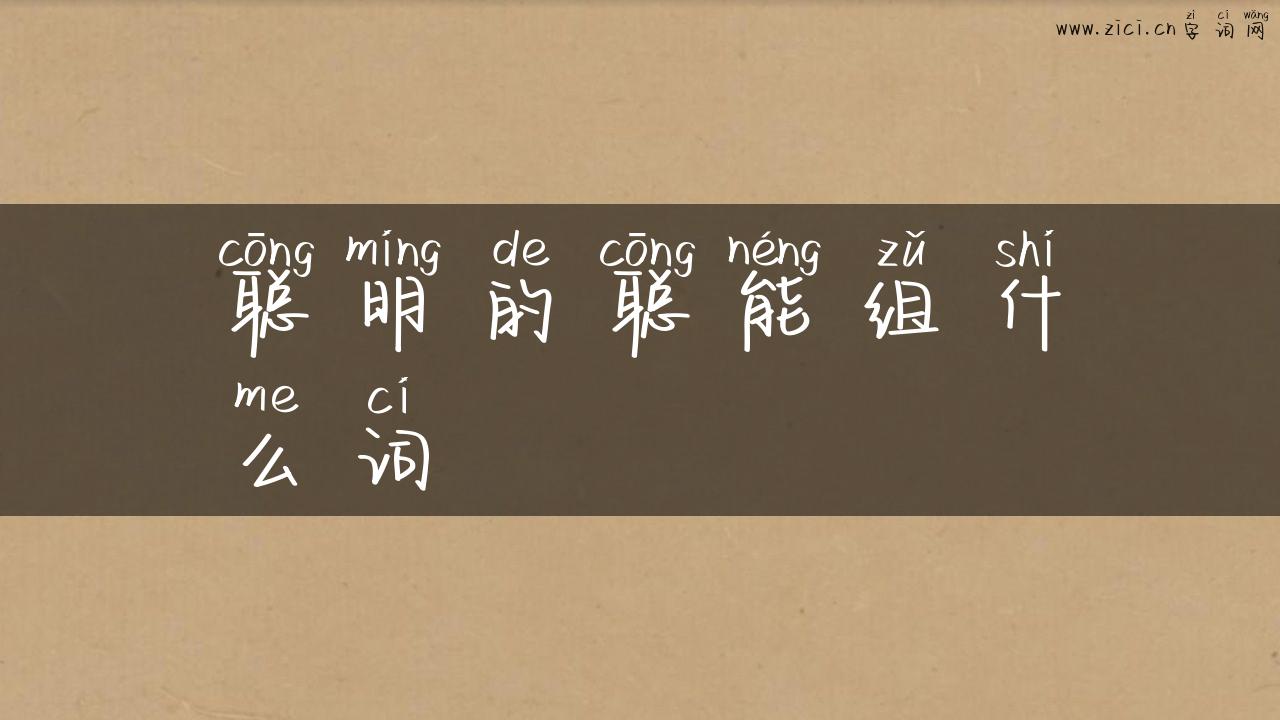 www.zici.cn 字词网
zì cí wǎng
cōng míng de cōng néng zǔ shí
聪明的聪能组什
me cí
么词